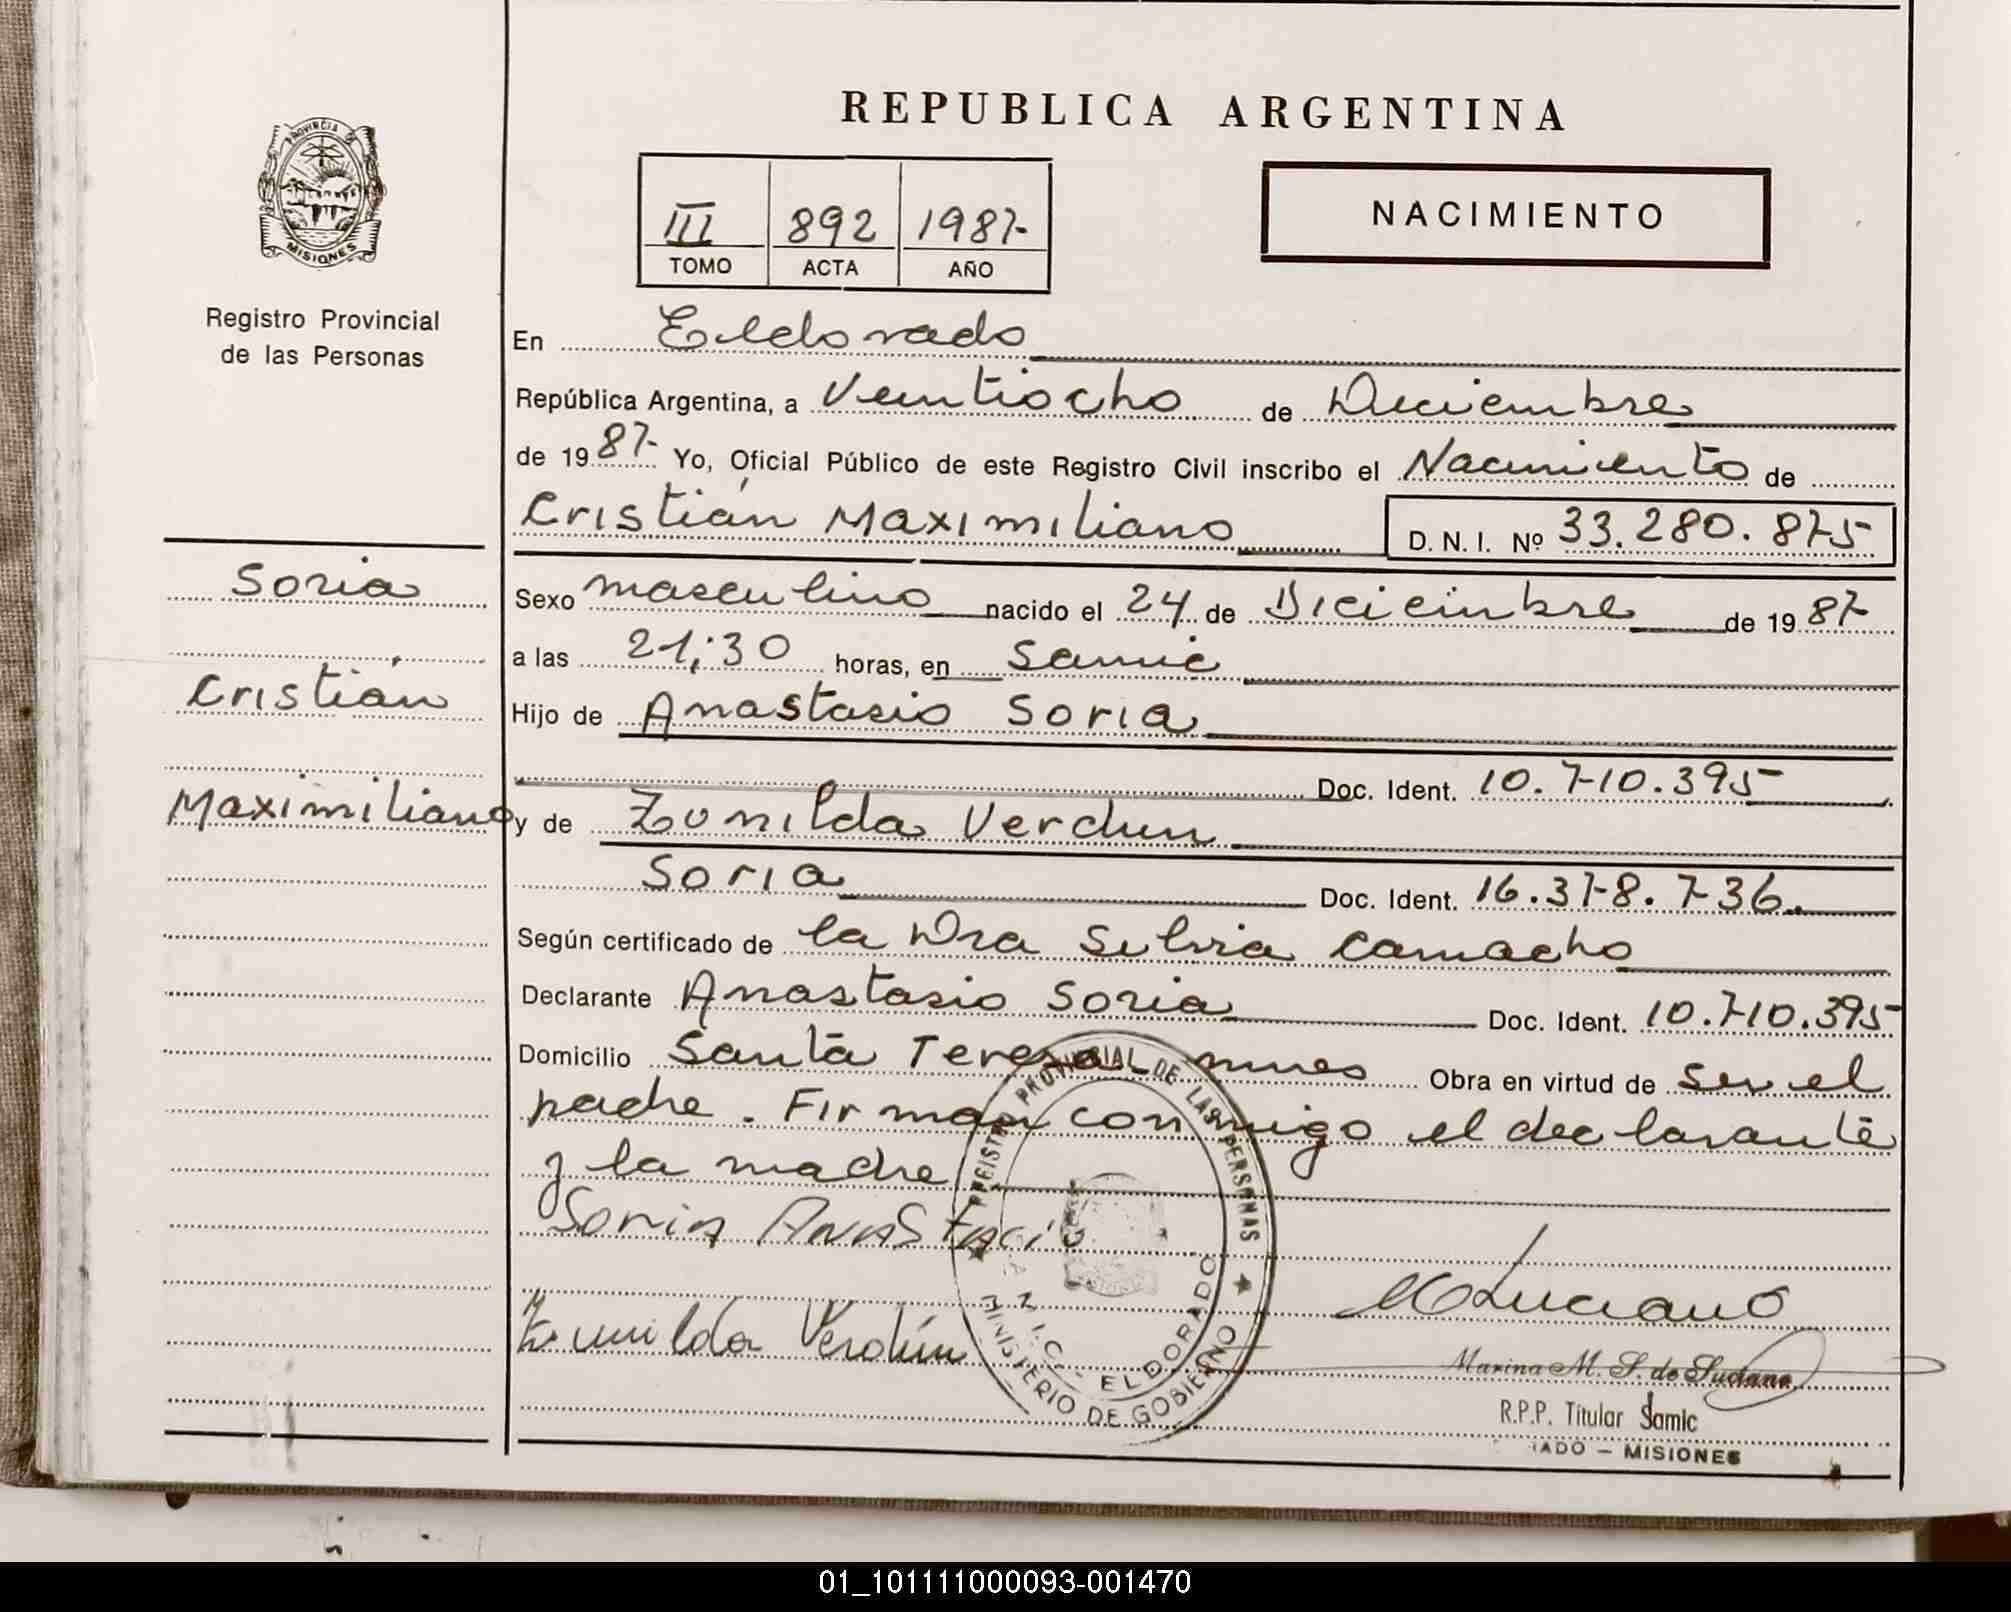 REPUBLICA ARGENTINA
PROVINCIA DE
MISIONES
Registro Provincial
de las Personas
III 892 1987
TOMO ACTA AÑO
NACIMIENTO
En Eldorado
República Argentina, a Veintiocho de Diciembre
de 1987 Yo, Oficial Público de este Registro Civil inscribo el Nacimiento de
Cristián Maximiliano D. N. I. Nº 33.280.875
Soria
Cristián
Maximiliano
Sexo masculino nacido el 24 de Diciembre de 1987
a las 21:30 horas, en Samic
Hijo de Anastasio Soria
Doc. Ident. 10.710.395
y de Zunilda Verdun
Soria Doc. Ident. 16.378.736.
Según certificado de la Dra Silvia Camacho
Declarante Anastasio Soria Doc. Ident. 10.710.395
Domicilio Santa Teresa mnes Obra en virtud de ser el
padre. Firman conmigo el declarante
y la madre
Soria Anastacio
Zunilda Verdún
REGISTRO PROVINCIAL DE LAS PERSONAS
MINISTERIO DE GOBIERNO
ELDORADO
Marina M. S. de Luciano
R.P.P. Titular Samic
ADO - MISIONES
01_101111000093-001470